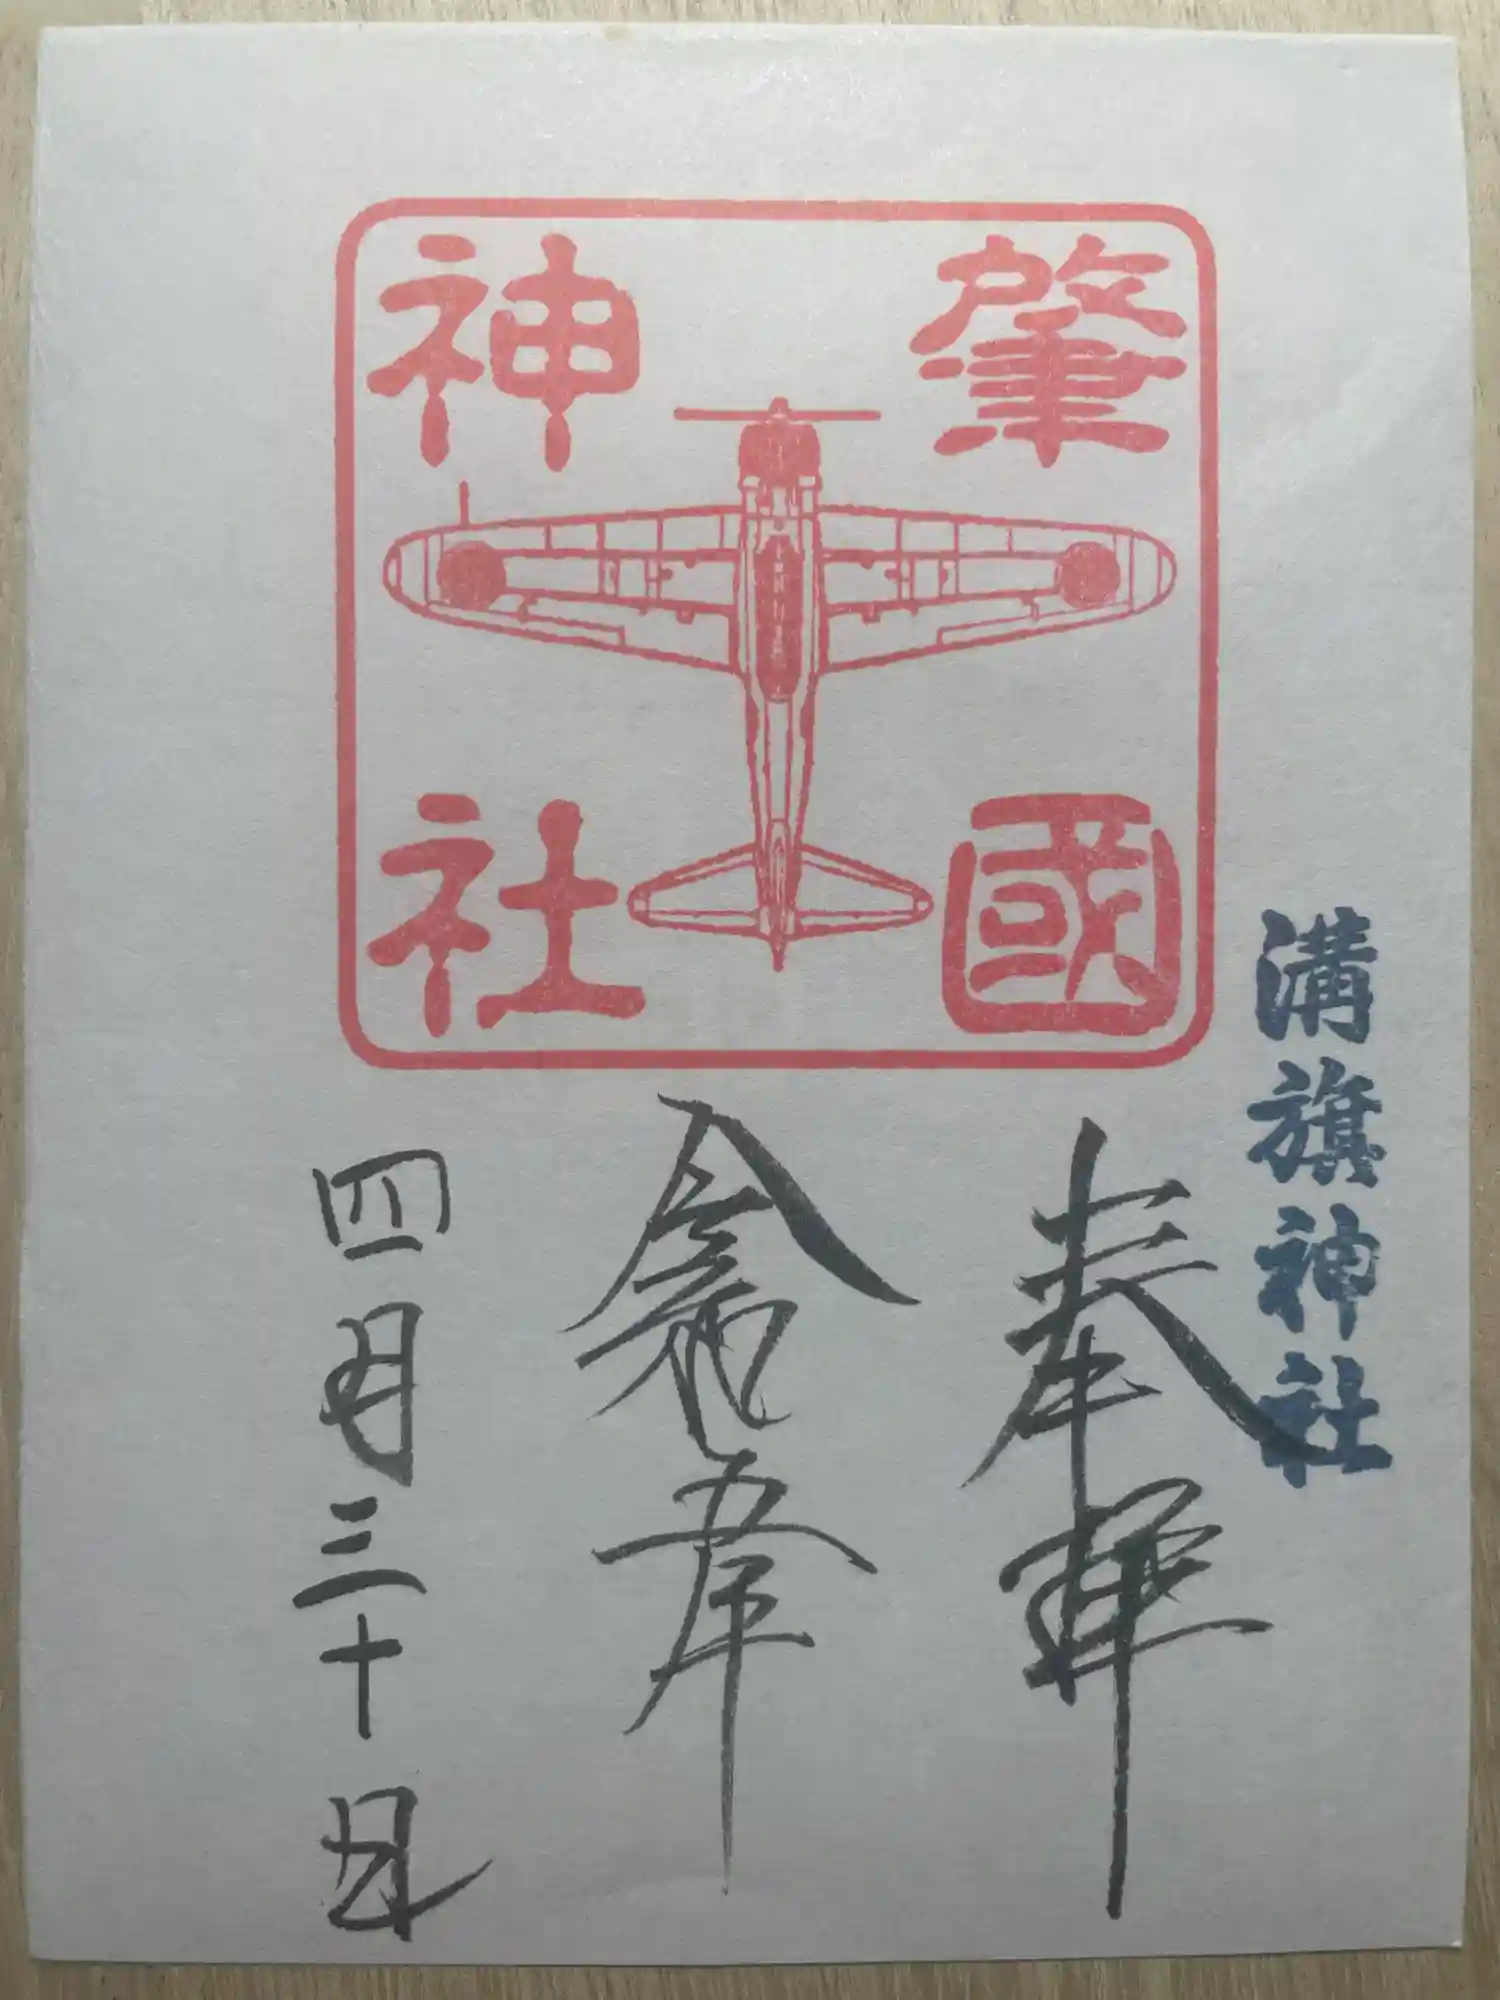 肇國
神社
溝旗神社
奉拝
令和五年
四月三十日